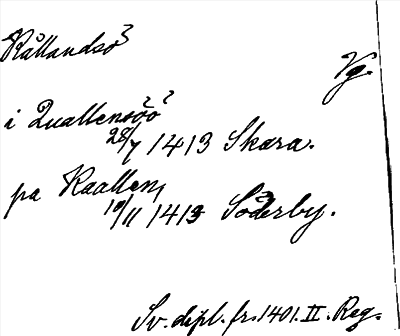 Kållandsö
Vg.
i Quallensöö
28/7 1413 Skara.
pa Kaallen,
10/11 1413 Söderby.
Sv. dipl. fr. 1401. II. Reg.